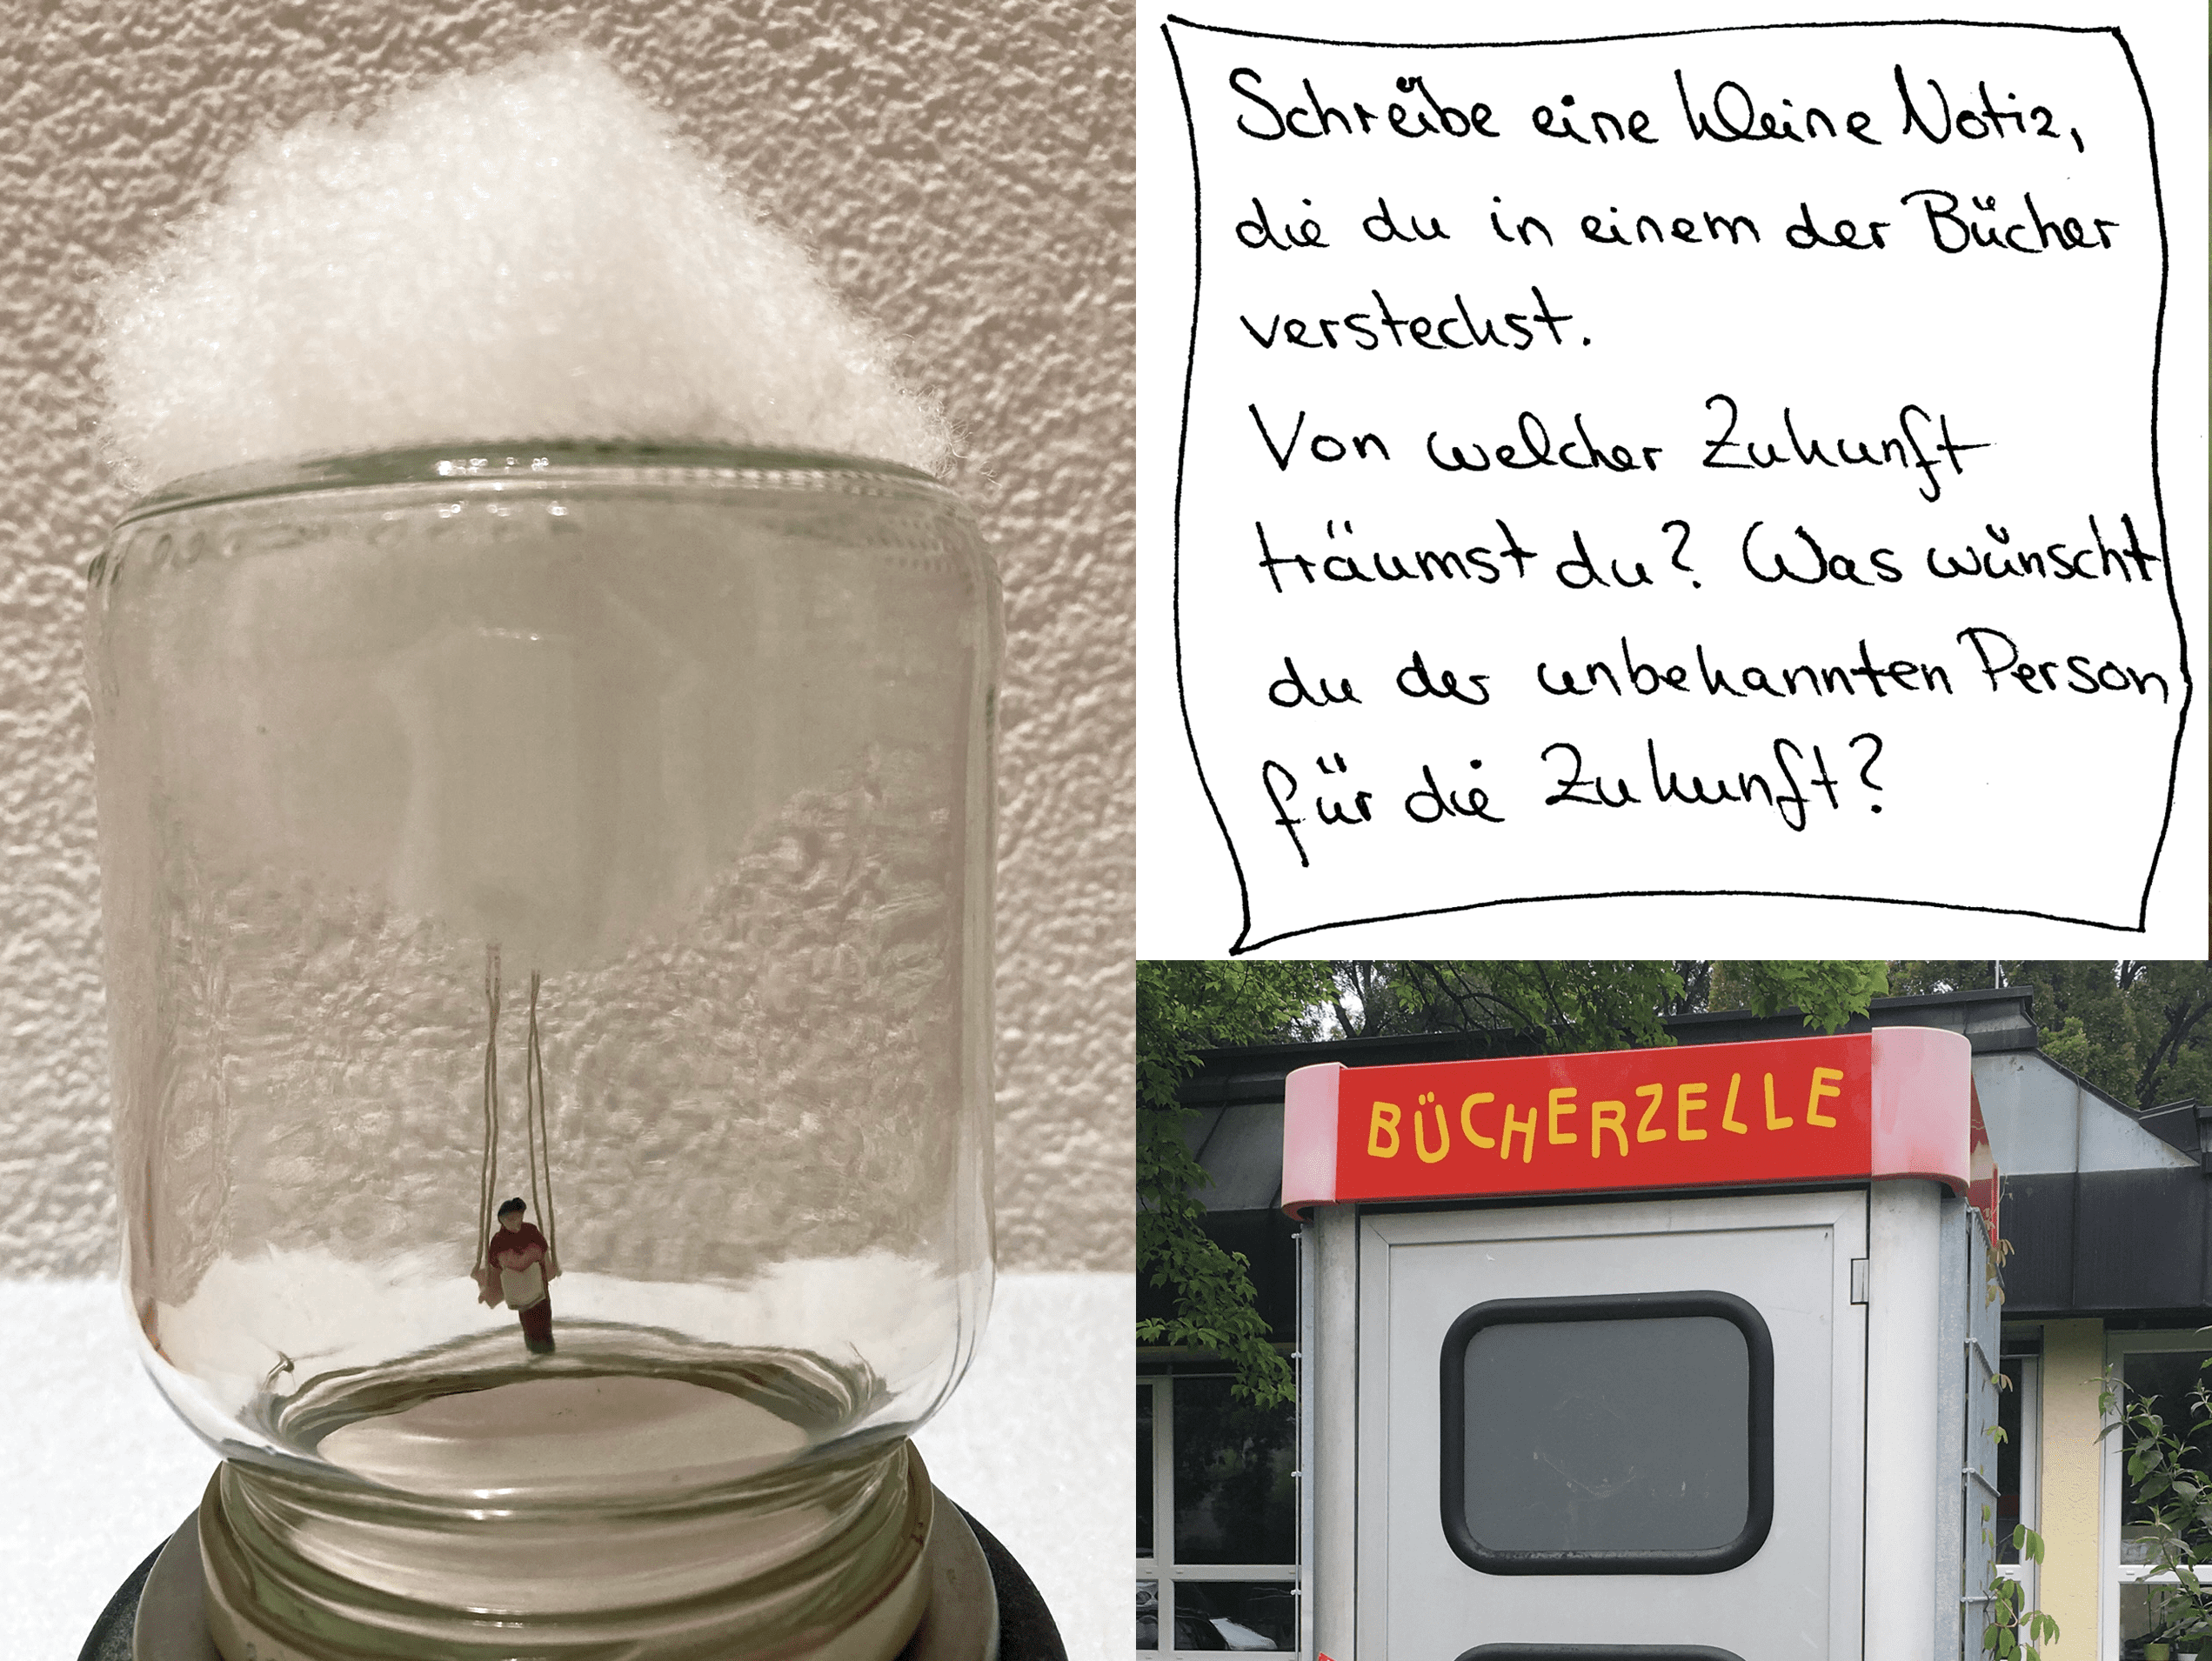 Schreibe eine kleine Notiz,
die du in einem der Bücher
versteckst.
Von welcher Zukunft
träumst du? Was wünscht
du der unbekannten Person
für die Zukunft?
BÜCHERZELLE